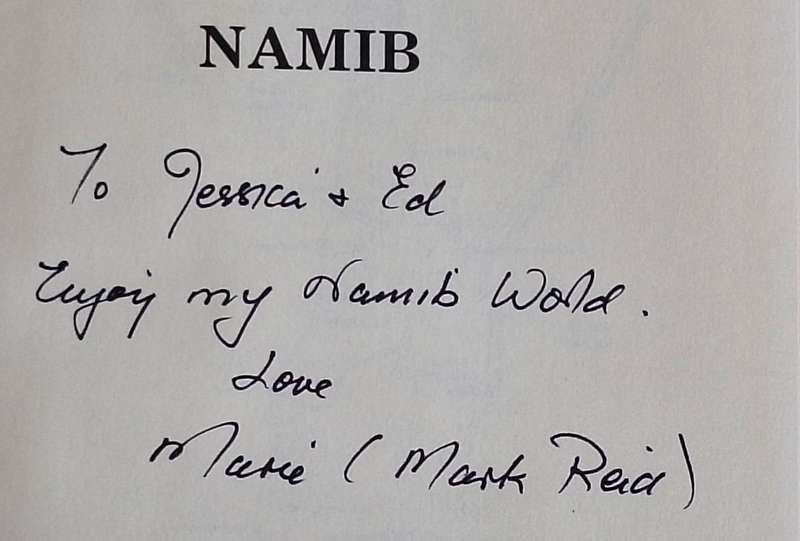 NAMIB
To Jessica & Ed
Enjoy my Namib World.
Love
Marie (Mark Reid)